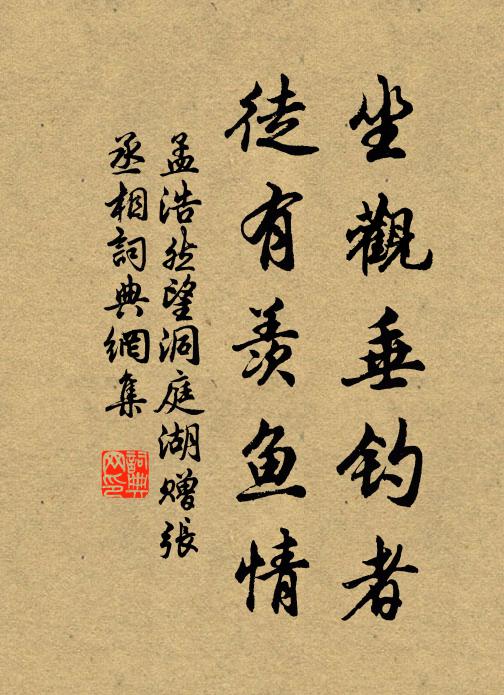 坐觀垂釣者
徒有羨魚情
孟浩然望洞庭湖贈張
丞相詞典網集
詞典
网印